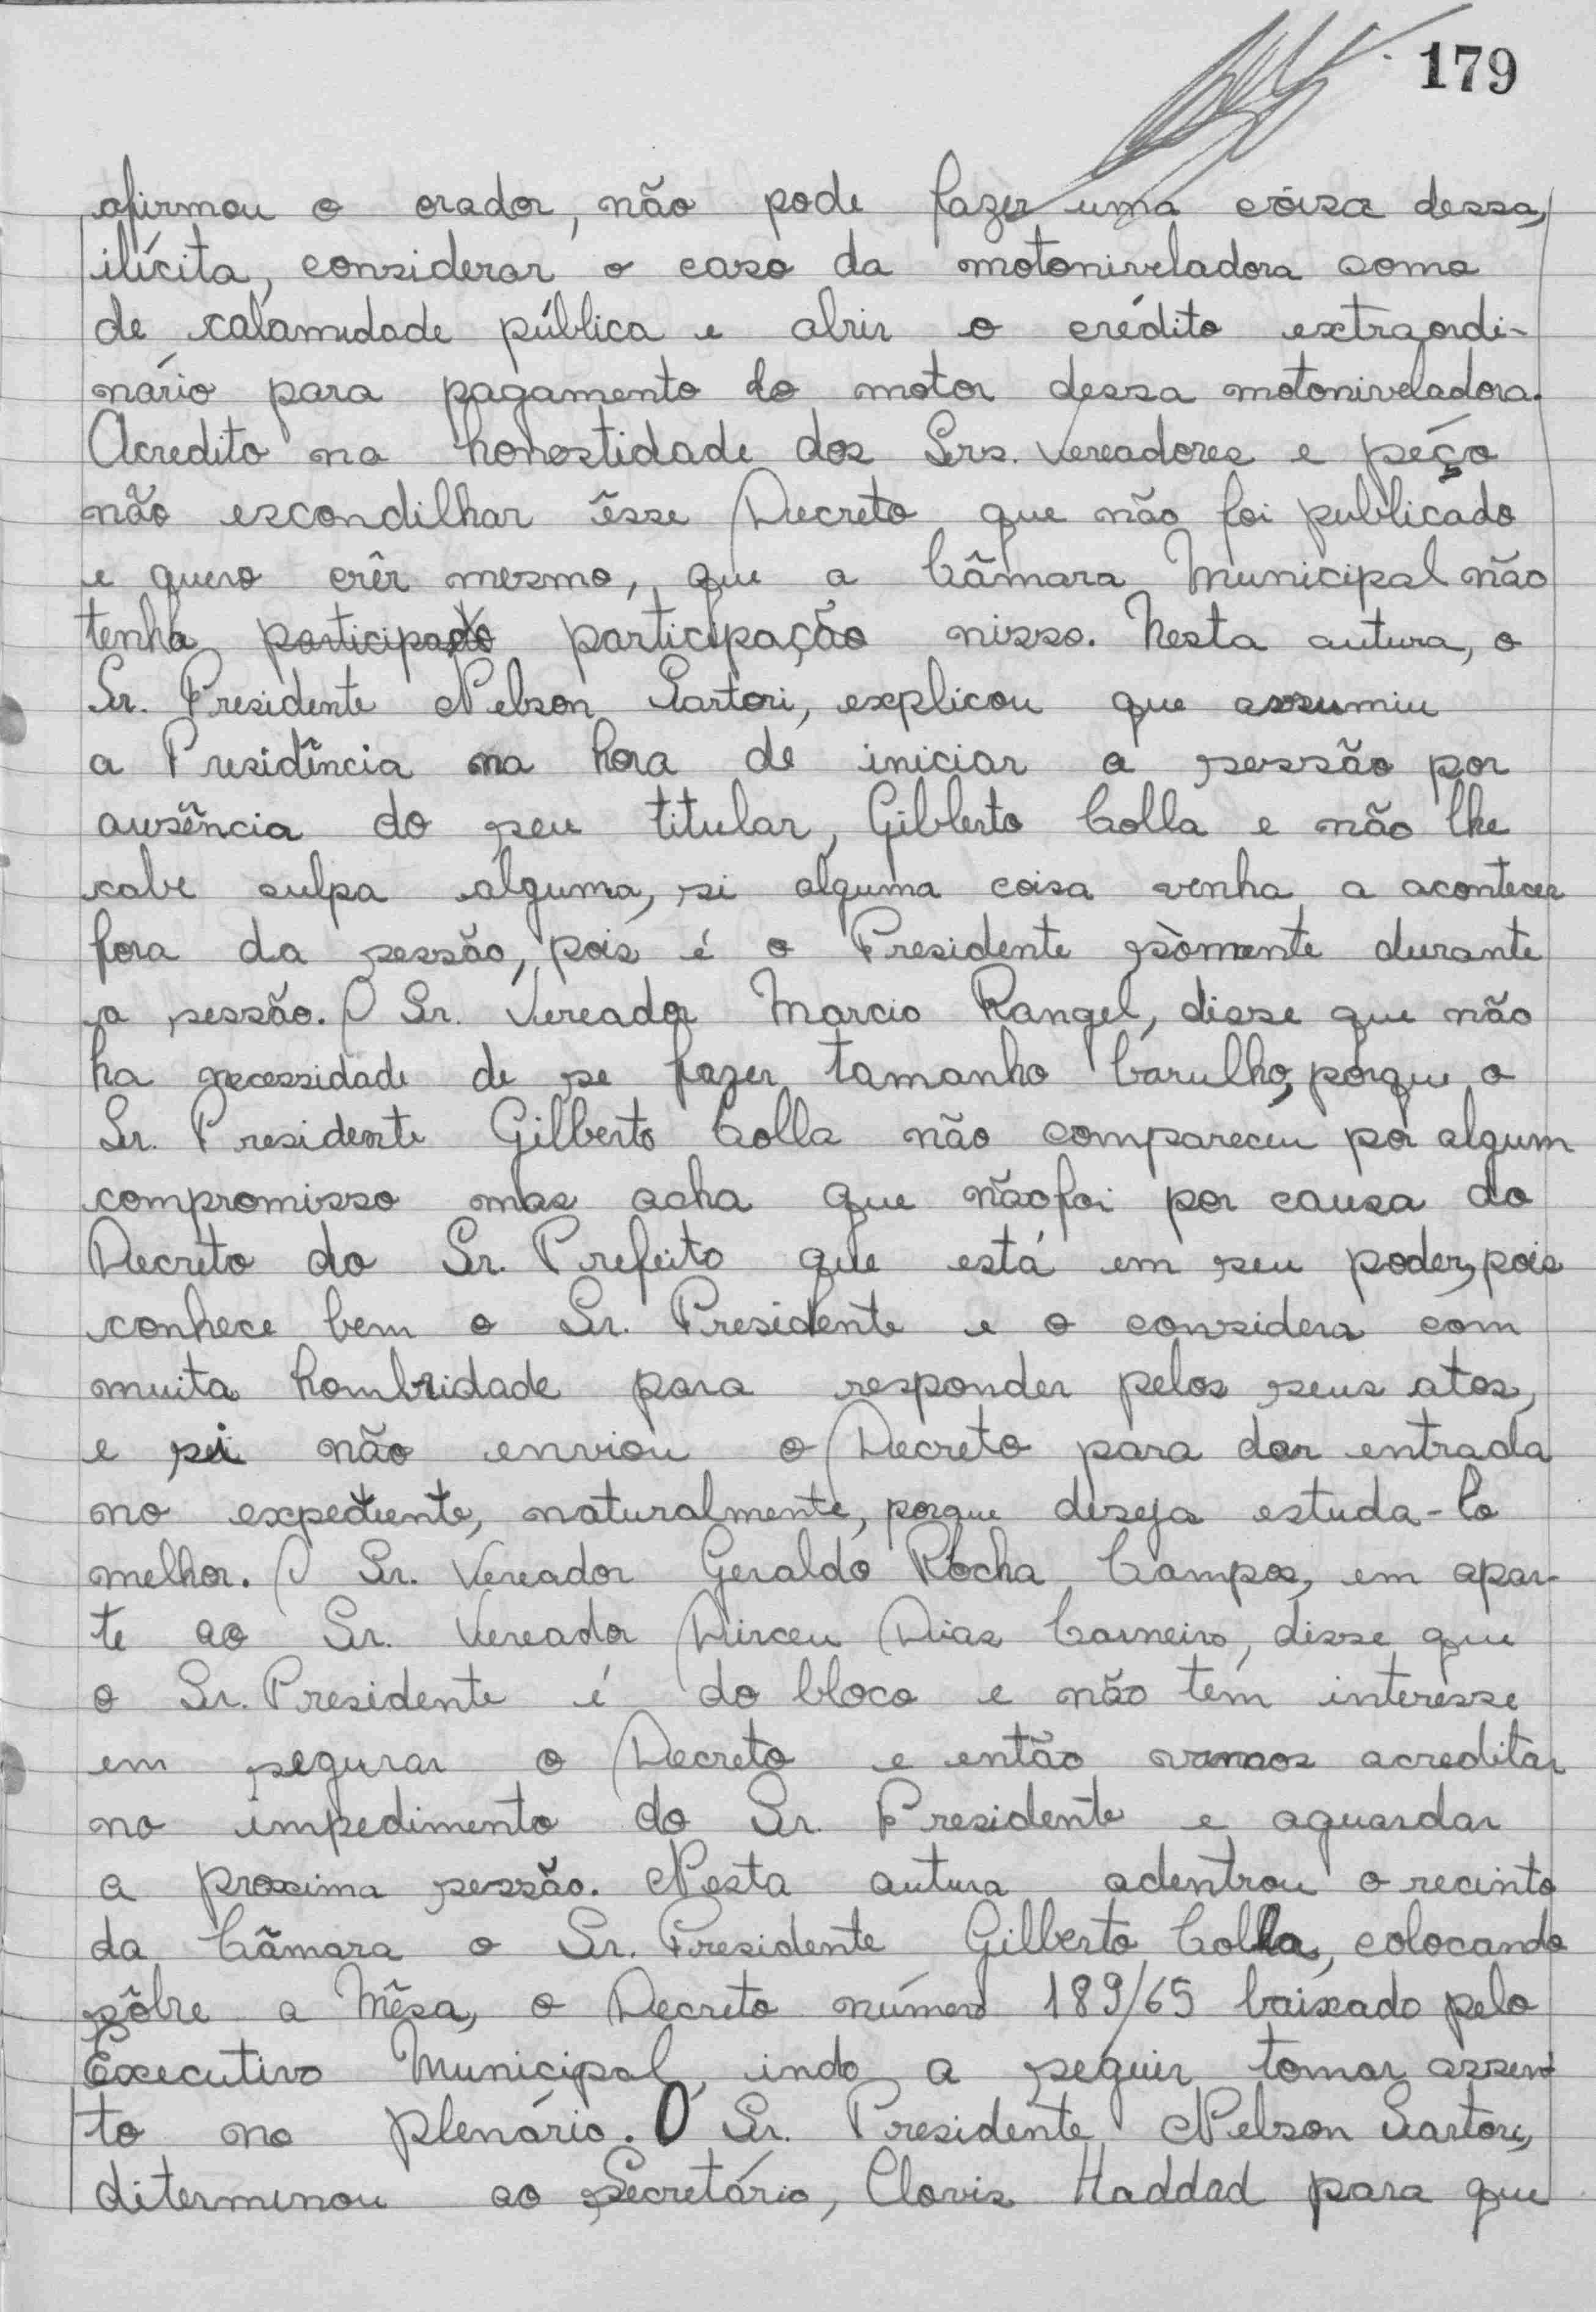 179
afirmou o orador, não pode fazer uma cóisa dessa,
ilícita, considerar o caso da motoniveladora como
de calamidade pública e abrir o crédito extraordi-
nário para pagamento do motor dessa motoniveladora.
Acredito na honestidade dos Srs. Vereadores e péço
não escondilhar êsse Decreto que não foi publicado
e quero crêr mesmo, que a Câmara Municipal não
tenha participado participação nisso. Nesta autura, o
Sr. Presidente Nelson Sartori, explicou que assumiu
a Presidência na hora de iniciar a sessão por
ausência do seu titular, Gilberto Colla e não lhe
cabe culpa alguma, si alguma coisa venha a acontecer
fora da sessão, pois é o Presidente sòmente durante
a sessão. O Sr. Vereador Marcio Rangel, disse que não
ha necessidade de se fazer tamanho barulho, porque o
Sr. Presidente Gilberto Colla não compareceu por algum
compromisso mas acha que não foi por causa do
Decreto do Sr. Prefeito que está em seu poder, pois
conhece bem o Sr. Presidente e o considera com
muita hombridade para responder pelos seus atos,
e si não enviou o Decreto para dar entrada
no expediente, naturalmente, porque deseja estuda-lo
melhor. O Sr. Vereador Geraldo Rocha Campos, em apar-
te ao Sr. Vereador Dirceu Dias Carneiro, disse que
o Sr. Presidente é do bloco e não tem interèsse
em segurar o Decreto e então vamos acreditar
no impedimento do Sr. Presidente e aguardar
a proxima sessão. Nesta autura adentrou o recinto
da Câmara o Sr. Presidente Gilberto Colla, colocando
sôbre a Mêsa, o Decreto número 189/65 baixado pelo
Executivo Municipal, indo a seguir tomar assen
to no plenário. O Sr. Presidente Nelson Sartori,
diterminou ao Secretário, Clovis Haddad para que